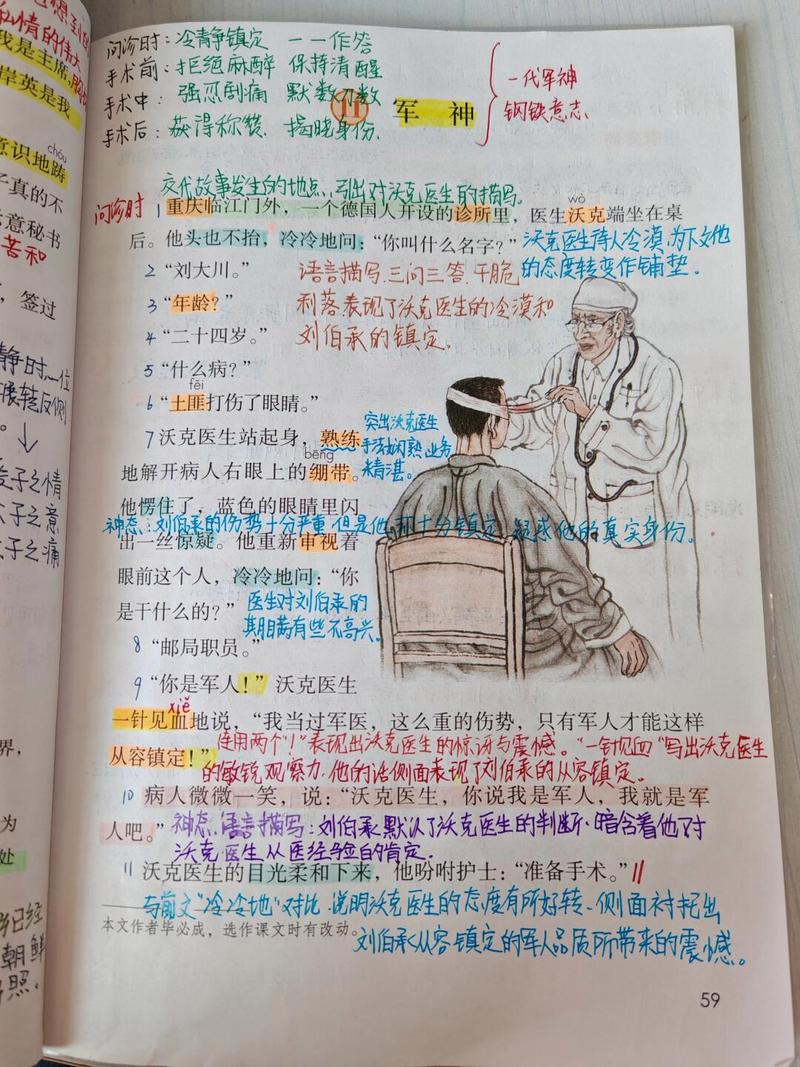 思想到
私情的伟大
我是主席,
岸英是我
chóu
意识地踌
子真的不
意秘书
苦和
,签过
静时,一位
展转反侧
。↓
父子之情
父子之意
父子之痛
界,
为
处
已经
朝鲜
照.
问诊时:冷静镇定 一一作答
手术前:拒绝麻醉 保持清醒
手术中:强忍剧痛 默数刀数
手术后:获得称赞 揭晓身份.
一代军神
钢铁意志.
11 军神
交代故事发生的地点,引出对沃克医生的描写。
问诊时
wò
1 重庆临江门外,一个德国人开设的诊所里,医生沃克端坐在桌
后。他头也不抬,冷冷地问:“你叫什么名字?”
沃克医生待人冷漠,为下文他
的态度转变作铺垫。
2 “刘大川。”
语言描写.三问三答.干脆
3 “年龄?”
利落.表现了沃克医生的冷漠和
4 “二十四岁。”
刘伯承的镇定.
5 “什么病?”
fěi
6 “土匪打伤了眼睛。”
7 沃克医生站起身,熟练
突出沃克医生
手法娴熟,业务
精湛。
bēng
地解开病人右眼上的绷带。
他愣住了,蓝色的眼睛里闪
神态:刘伯承的伤势十分严重.但是他却十分镇定.疑惑他的真实身份。
出一丝惊疑。他重新审视着
眼前这个人,冷冷地问:“你
是干什么的?”
医生对刘伯承的
期瞒有些不高兴。
8 “邮局职员。”
9 “你是军人!”沃克医生
xiě
一针见血地说,“我当过军医,这么重的伤势,只有军人才能这样
从容镇定!”
使用两个“!”表现出沃克医生的惊讶与震憾。“一针见血”写出沃克医生
的敏锐观察力.他的话侧面表现了刘伯承的从容镇定.
10 病人微微一笑,说:“沃克医生,你说我是军人,我就是军
人吧。”
神态.语言描写:刘伯承默认了沃克医生的判断.暗含着他对
沃克医生从医经验的肯定.
11 沃克医生的目光柔和下来,他吩咐护士:“准备手术。”
与前文“冷冷地”对比.说明沃克医生的态度有所好转.侧面衬托出
本文作者毕必成,选作课文时有改动。
刘伯承从容镇定的军人品质所带来的震憾。
59